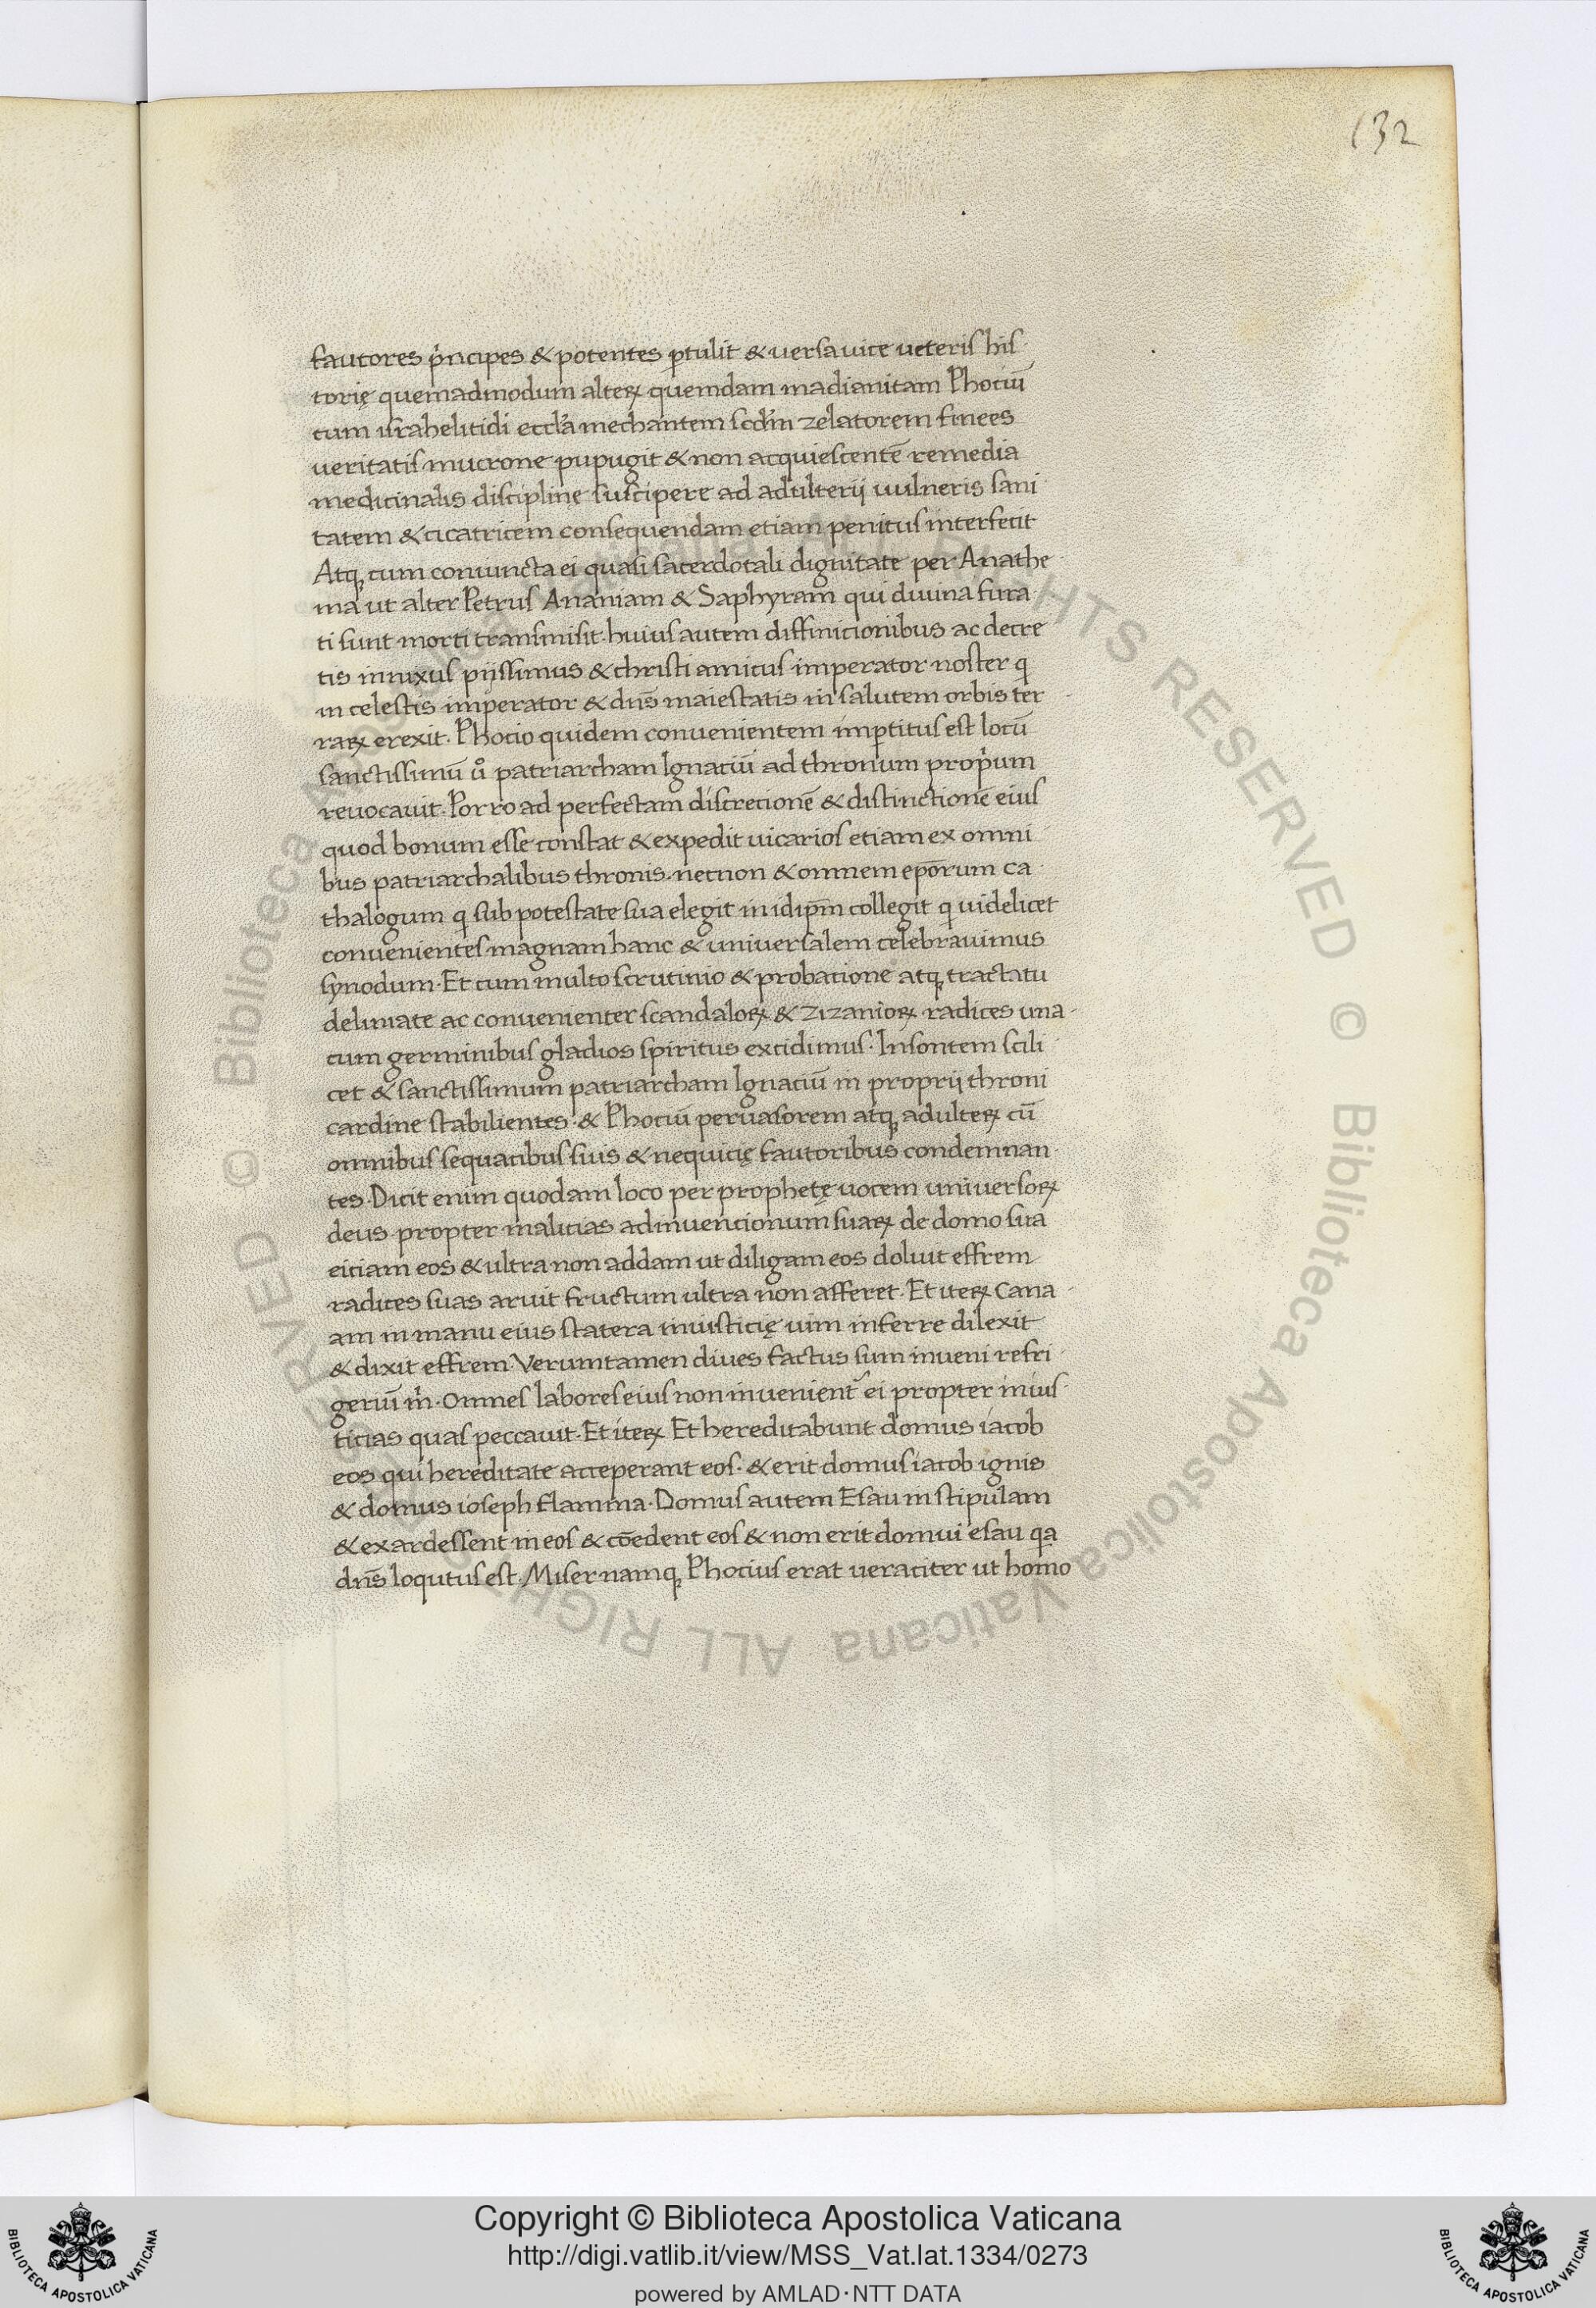 132
fautores p̍ncipes & potentes ꝑtulit & uersa uice ueteris his
torię quemadmodum alteꝝ quemdam madianitam Phociū
cum israhelitidi eccl̓a mechantem scd̓m zelatorem finees
ueritatis mucrone pupugit & non acquiescentē remedia
medicinalis disciplinę suscipere ad adulterij uulneris sani
tatem & cicatricem consequendam etiam penitus interfecit
Atq; cum coniuncta ei quasi sacerdotali dignitate per Anathe
ma ut alter Petrus Ananiam & Saphyram qui diuina fura
ti sunt morti transmisit. huius autem diffinicionibus ac decre
tis innixus pijssimus & christi amicus imperator noster q̍
in celestis imperator & dn̄s maiestatis in salutem orbis ter
raꝝ erexit. Phocio quidem conuenientem imꝑtitus est locū
sanctissimū ů patriarcham Ignaciū ad thronum prop̍um
reuocauit. Porro ad perfectam discrecionē & distinctionē eius
quod bonum esse constat & expedit uicarios etiam ex omni
bus patriarchalibus thronis. necnon & omnem ep̄orum ca
thalogum q̍ sub potestate sua elegit in idip̄m collegit q̍ uidelicet
conuenientes magnam hanc & uniuersalem celebrauimus
synodum. Et cum multo scrutinio & probacione atq; tractatu
delimate ac conuenienter scandaloꝝ & zizanioꝝ radices una
cum germinibus gladios spiritus excidimus. Insontem scili
cet & sanctissimum patriarcham Ignaciū in proprij throni
cardine stabilientes. & Phociū peruasorem atq; adulteꝝ cū
omnibus sequacibus suis & nequicię fautoribus condemnan
tes. Dicit enim quodam loco per prophetę uocem uniuersoꝝ
deus propter malicias adinuencionum suaꝝ de domo sua
eiciam eos & ultra non addam ut diligam eos doluit effrem
radices suas aruit fructum ultra non afferet. Et iteꝝ Cana
am in manu eius statera iniusticię uim inferre dilexit
& dixit effrem Verumtamen diues factus sum inueni refri
geriū m̍. Omnes labores eius non inuenient᷑ ei propter inius
ticias quas peccauit. Et iteꝝ Et hereditabunt domus iacob
eos qui hereditate acceperant eos. & erit domus iacob ignis
& domus ioseph flamma. Domus autem Esau in stipulam
& exardessent in eos & cōedent eos & non erit domui esau q̍a
dn̄s loqutus est. Miser namq; Phocius erat ueraciter ut homo
© Biblioteca Apostolica Vaticana ALL RIGHTS RESERVED
© Biblioteca Apostolica Vaticana ALL RIGHTS RESERVED
BIBLIOTECA APOSTOLICA VATICANA
Copyright © Biblioteca Apostolica Vaticana
http://digi.vatlib.it/view/MSS_Vat.lat.1334/0273
powered by AMLAD·NTT DATA
BIBLIOTECA APOSTOLICA VATICANA